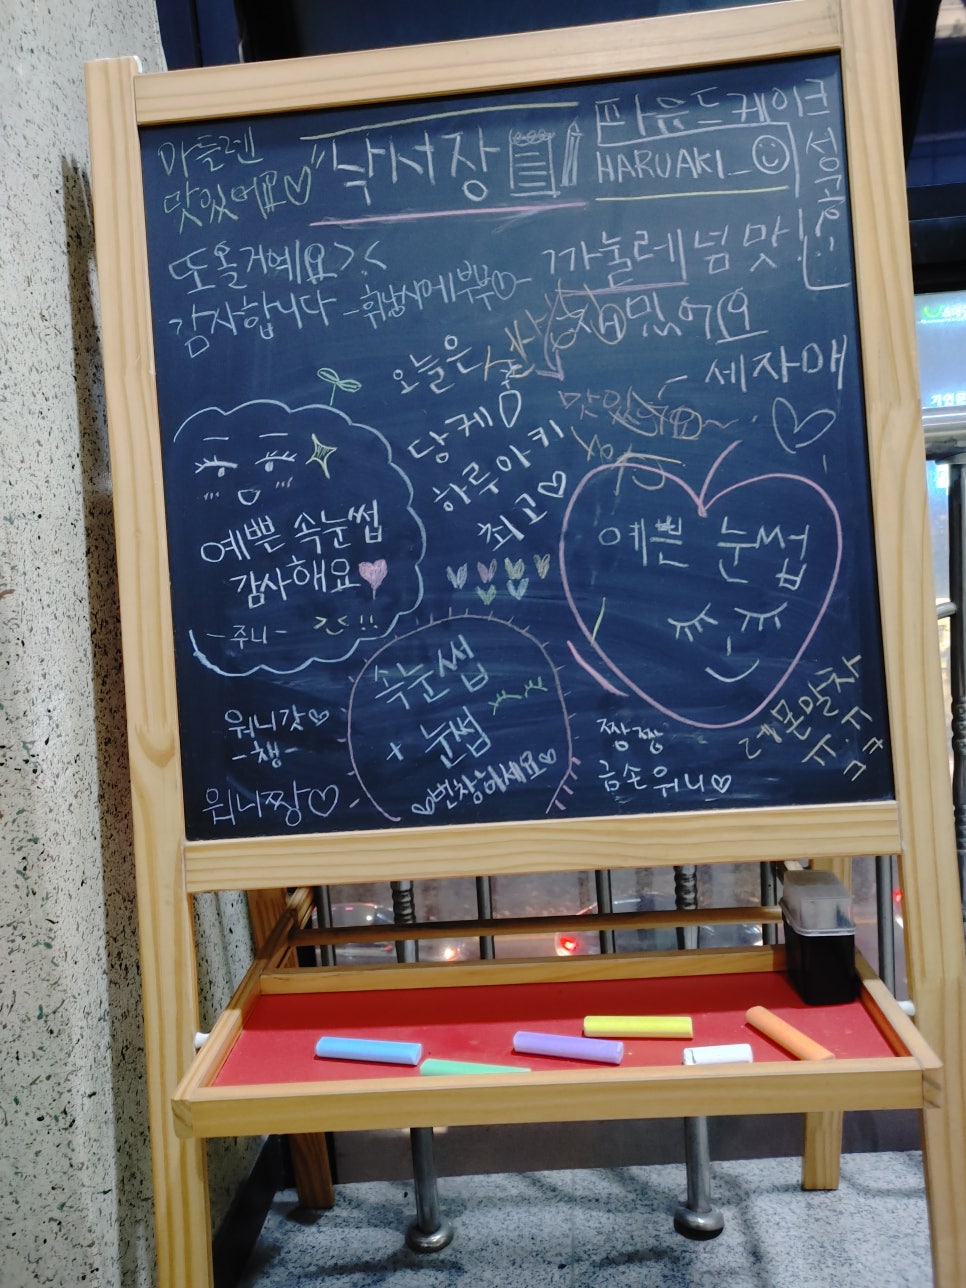 마들렌
맛있어요!!♡
"낙서장
파운드케이크
HARUAKI_☺
성공
또 올거예요>.<
감사합니다
까눌레 넘 맛!
있어요
세자매
오늘은
당케이
하루아키
최고♡
예쁜 속눈썹
감사해요
-주니- >.< !!
예쁜 눈썹
속눈썹
+ 눈썹
♡번창하세요♡
워니갓♡
-챙-
워니짱♡
짱짱
금손워니♡
레몬말차
ㅠ.ㅠ